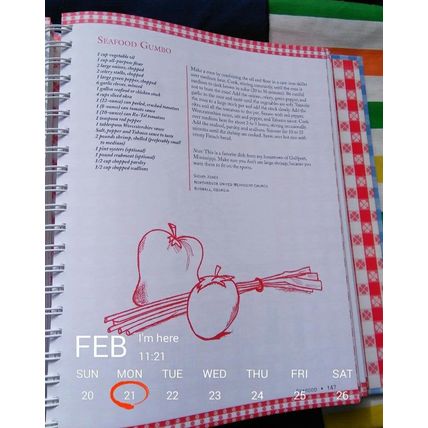 SEAFOOD GUMBO
1 cup vegetable oil
1 cup all-purpose flour
2 large onions, chopped
2 celery stalks, chopped
1 large green pepper, chopped
6 garlic cloves, minced
1 gallon seafood or chicken stock
4 cups sliced okra
2 (22-ounce) can peeled, crushed tomatoes
1 (8-ounce) can tomato sauce
1 (10-ounce) can Ro-Tel tomatoes
1 teaspoon
1 tablespoon Worcestershire sauce
Salt, pepper and Tabasco sauce to taste
2 pounds shrimp, shelled (preferably small
to medium)
1 pint oysters (optional)
1 pound crabmeat (optional)
1/2 cup chopped parsley
1/2 cup chopped scallions
Make a roux by combining the oil and flour in a
over medium heat. Cook, stirring constantly, until the roux
is dark brown in color
not to burn the roux. Add the onions, celery, green pepper, and
garlic to the roux and sauté until the vegetables are soft. Transfer
the roux to a large stock pot and add the stock slowly. Add the
okra and the tomatoes to the pot. Season with red pepper,
Worcestershire sauce, salt and pepper, and Tabasco sauce. Cook
over medium heat for about 2 to 3 hours, stirring occasionally.
Add the seafood, parsley and scallions. Simmer for 10 to 15
minutes until the shrimp are cooked. Serve over rice with
crusty French bread.
Note: This is a favorite dish from my hometown of Gulfport,
Mississippi. Make sure you don't use large shrimp, because you
want them to fit on the spoon.
SUSAN JONES
NORTHSIDE UNITED METHODIST CHURCH
GEORGIA
FEB I'm here
11:21
SUN MON TUE WED THU FRI SAT
20 21 22 23 24 25 26
SEAFOOD • 147